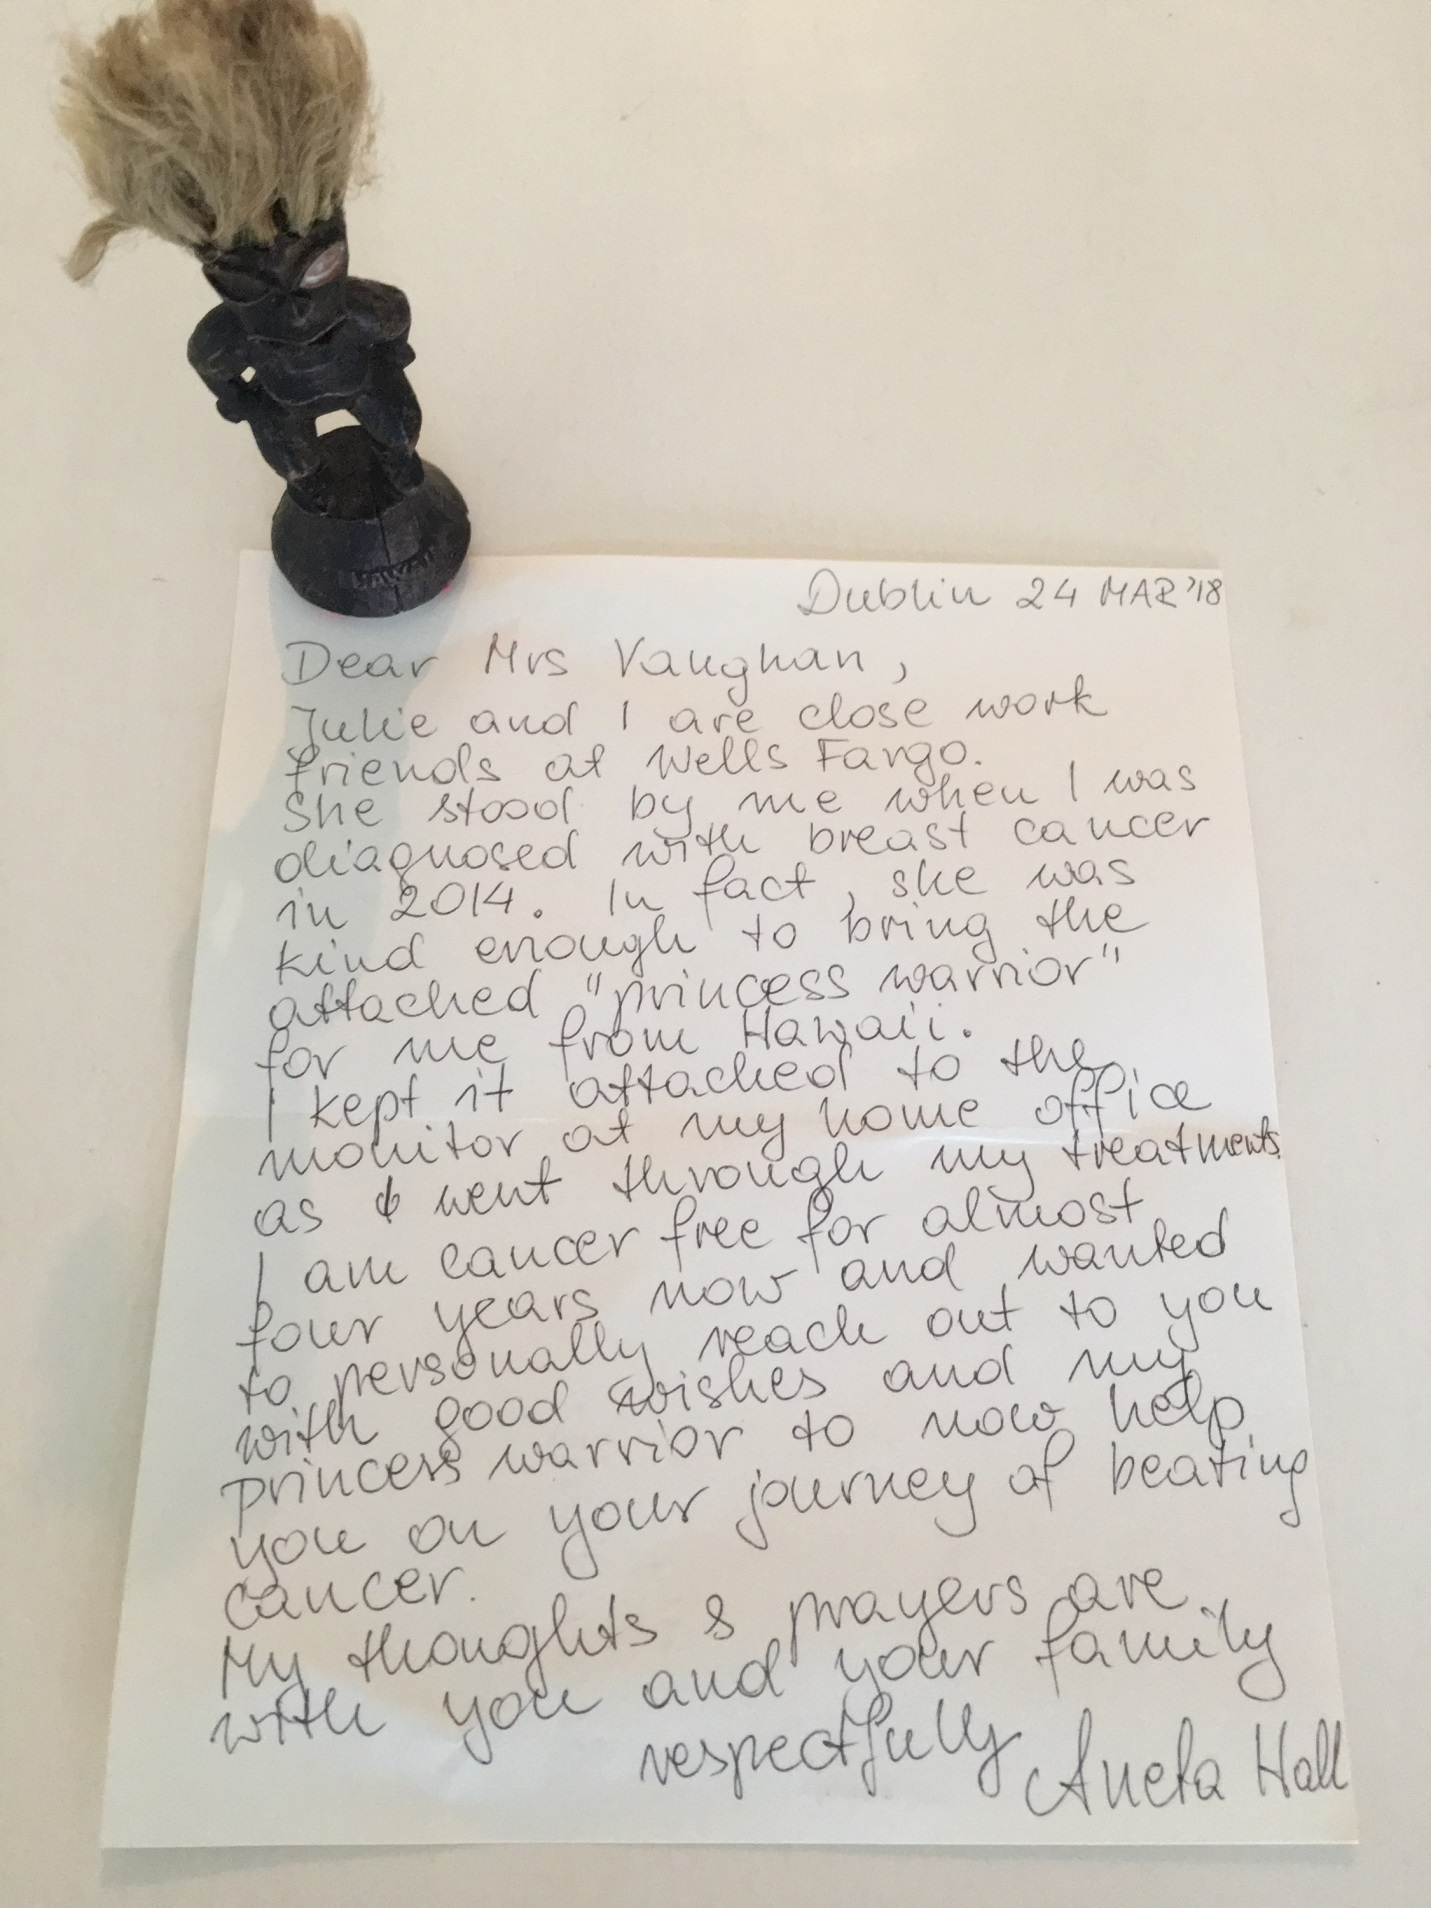 HAWAII
Dublin 24 MAR '18
Dear Mrs Vaughan,
Julie and I are close work
friends at Wells Fargo.
She stood by me when I was
diagnosed with breast cancer
in 2014. In fact, she was
kind enough to bring the
attached "princess warrior"
for me from Hawai'i.
I kept it attached to the
monitor at my home office
as I went through my treatments.
I am cancer free for almost
four years now and wanted
to personally reach out to you
with good wishes and my
princess warrior to now help
you on your journey of beating
cancer.
My thoughts & prayers are
with you and your family
respectfully
Aneta Hall